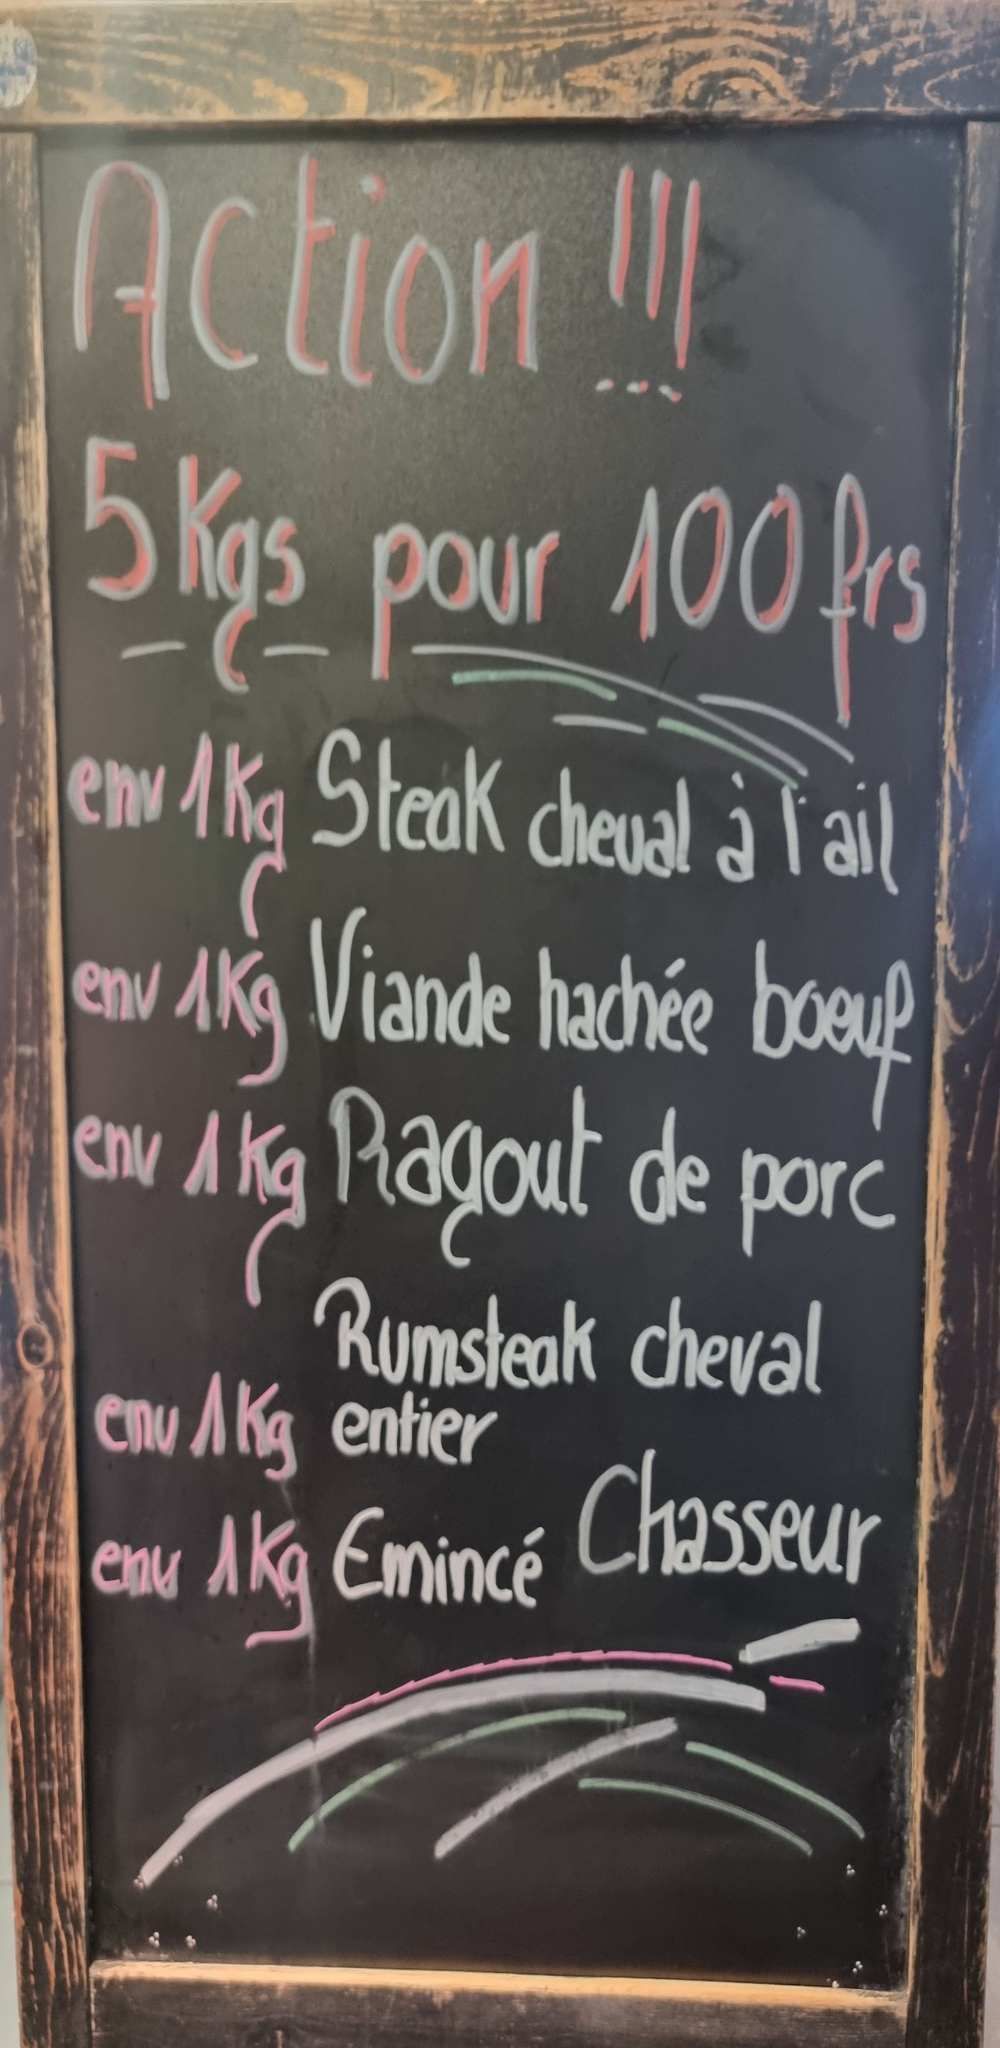 Action !!!
5 Kgs pour 100 frs
env 1 Kg Steak cheval à l'ail
env 1 Kg Viande hachée boeuf
env 1 Kg Ragout de porc
Rumsteak cheval
env 1 Kg entier
env 1 Kg Emincé Chasseur